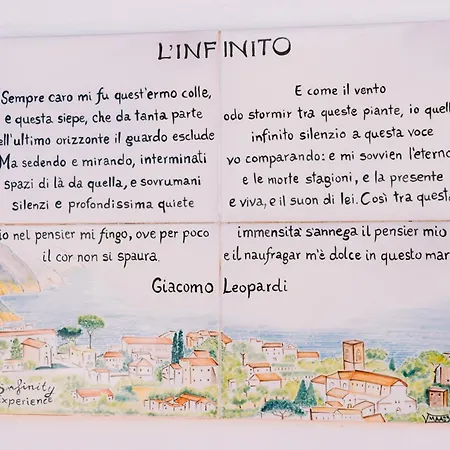 L'INFINITO
Sempre caro mi fu quest'ermo colle,
e questa siepe, che da tanta parte
ell'ultimo orizzonte il guardo esclude
Ma sedendo e mirando, interminati
spazi di là da quella, e sovrumani
silenzi e profondissima quiete
io nel pensier mi fingo, ove per poco
il cor non si spaura.
E come il vento
odo stormir tra queste piante, io quell
infinito silenzio a questa voce
vo comparando: e mi sovvien l'eterno
e le morte stagioni, e la presente
e viva, e il suon di lei. Così tra questa
immensità s'annega il pensier mio
e il naufragar m'è dolce in questo mar
Giacomo Leopardi
Infinity
Experience